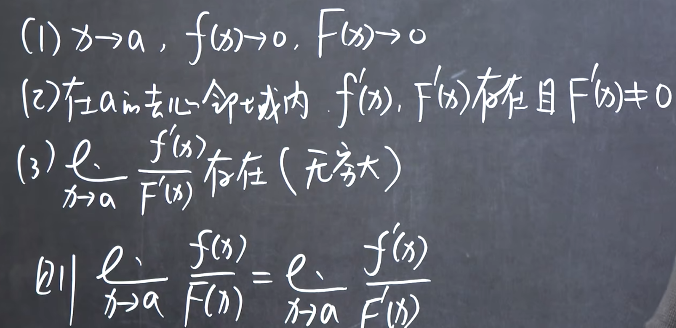 (1) x→a, f(x)→0, F(x)→0
(2) 在a的去心邻域内 f'(x), F'(x)存在且F'(x)≠0
(3) l. x→a f'(x)/F'(x) 存在(无穷大)
则 l. x→a f(x)/F(x) = l. x→a f'(x)/F'(x)